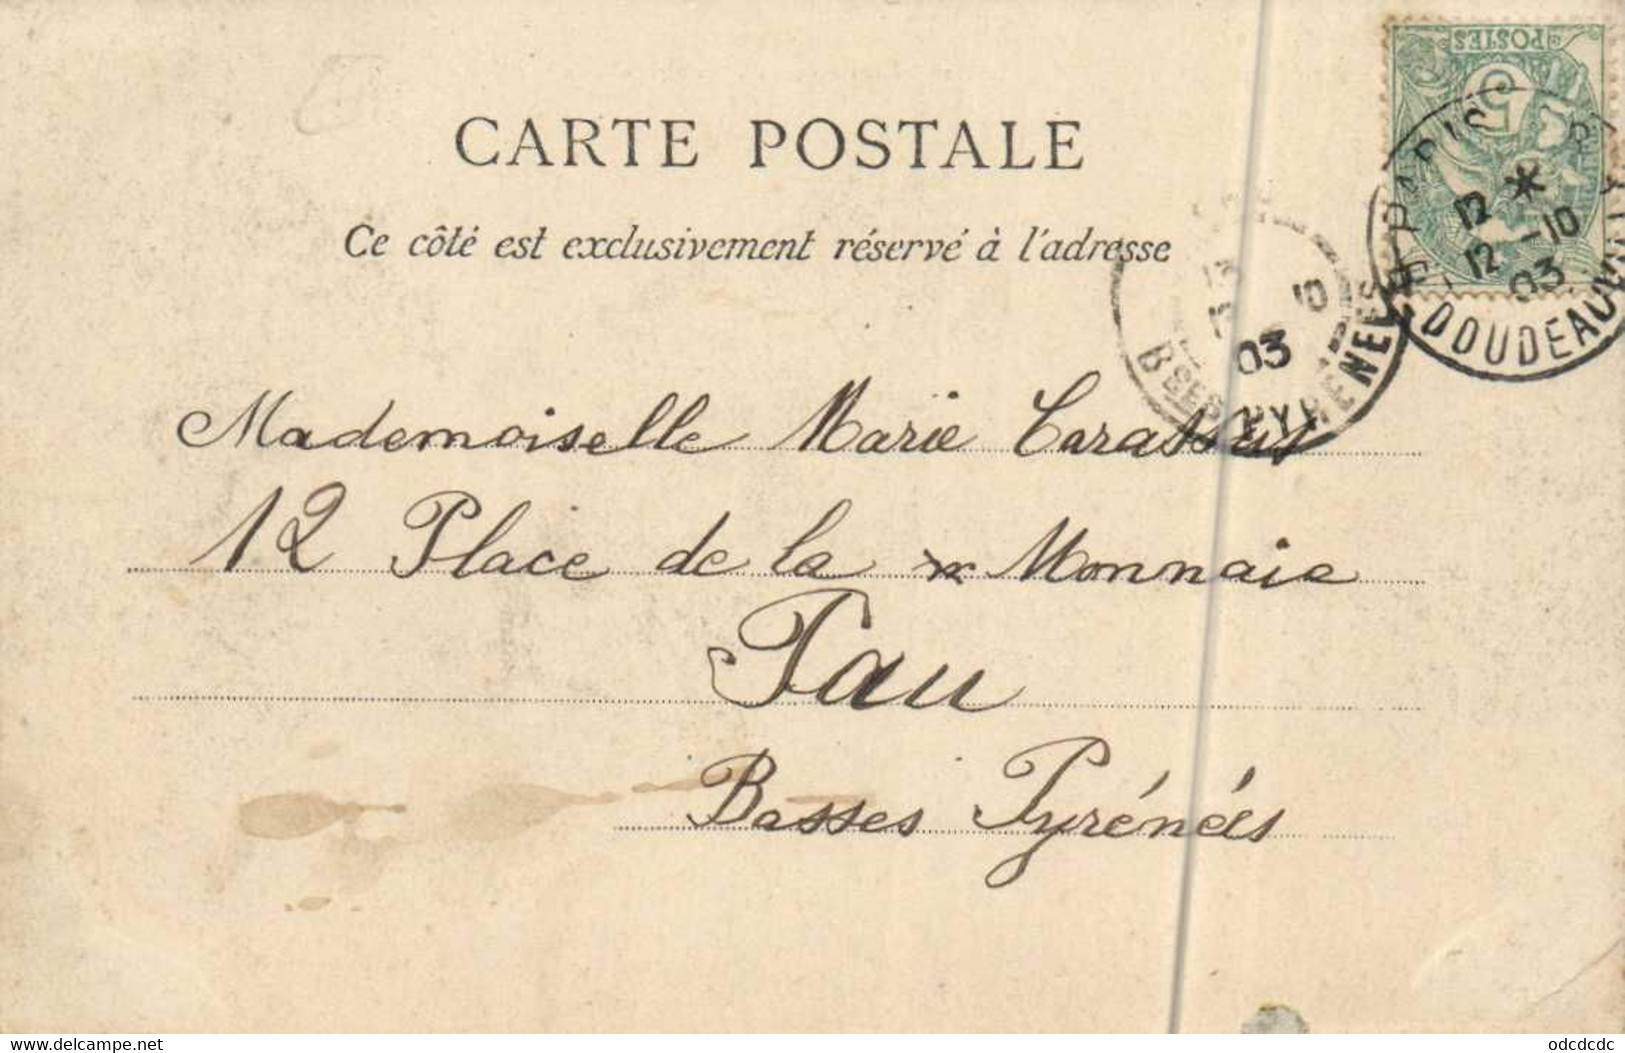 CARTE POSTALE
Ce côté est exclusivement réservé à l'adresse
POSTES
5
PARIS
12 *
12 -10
03
DOUDEAUVILLE
10
03
BSES PYRENEES
Mademoiselle Marie
12 Place de la Monnaie
Pau
Basses Pyrénées
www.delcampe.net
odcdcdc